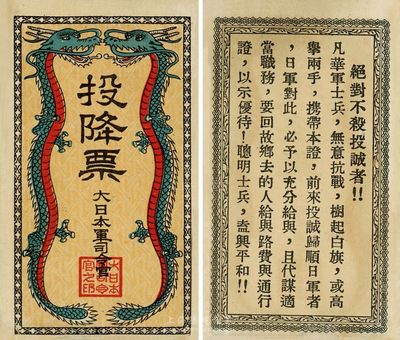 投降票
大日本軍司令官
大日本
軍司令
官之印
絕對不殺投誠者!!
凡華軍士兵，無意抗戰，樹起白旗，或高
擧兩手，携帶本證，前來投誠歸順日軍者
，日軍對此，必予以充分給與，且代謀適
當職務，要回故鄉去的人給與路費與通行
證，以示優待！聰明士兵，盍興乎和!!